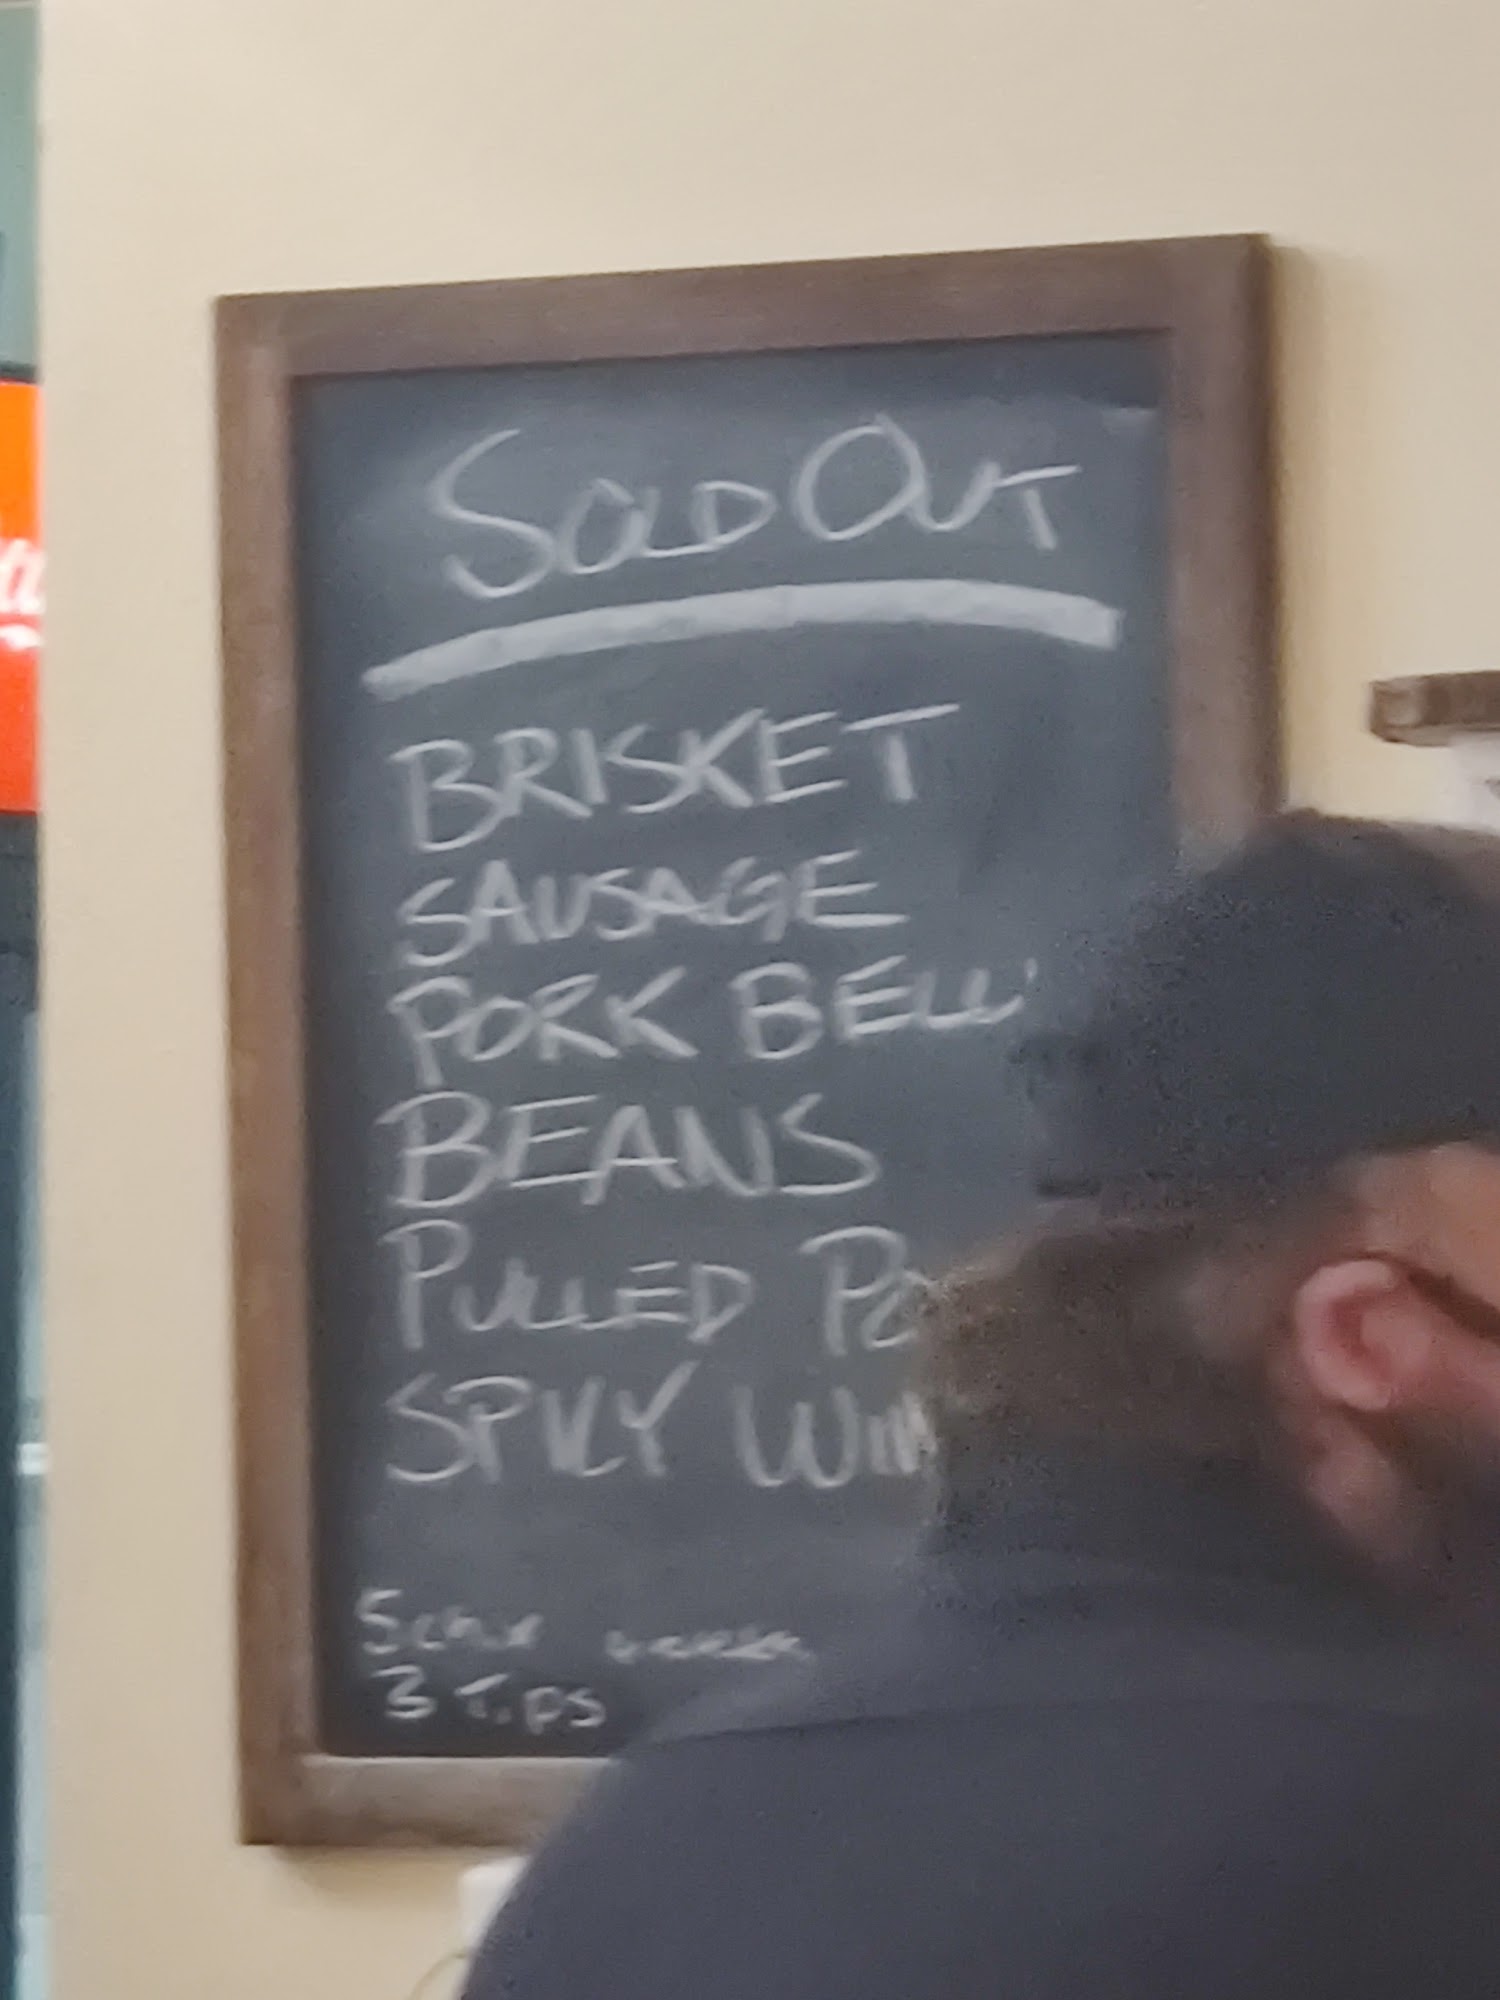 SOLD OUT
BRISKET
SAUSAGE
PORK BELL
BEANS
PULLED PO
SPICY WIN
3 TIPS